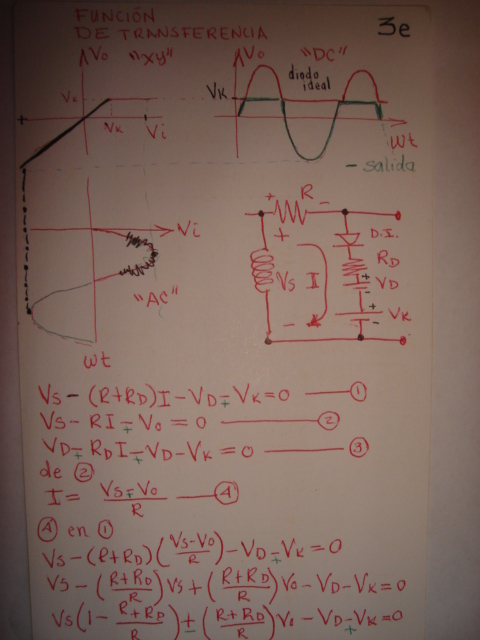 FUNCIÓN
DE TRANSFERENCIA
3e
Vo "XY"
Vo "DC"
diodo
ideal
VK
VK
VK
Vi
wt
- salida
Vi
"AC"
wt
+ R -
+
D.I.
RD
VS I
+
VD
-
+
VK
-
-
VS - (R+RD)I - VD - VK = 0 ①
VS - RI - Vo = 0 ②
VD - RD I - VD - VK = 0 ③
de ②
I = VS - Vo / R ④
④ en ①
VS - (R+RD) (VS - Vo / R) - VD - VK = 0
VS - (R+RD / R) VS + (R+RD / R) Vo - VD - VK = 0
VS (1 - R+RD / R) + (R+RD / R) Vo - VD - VK = 0